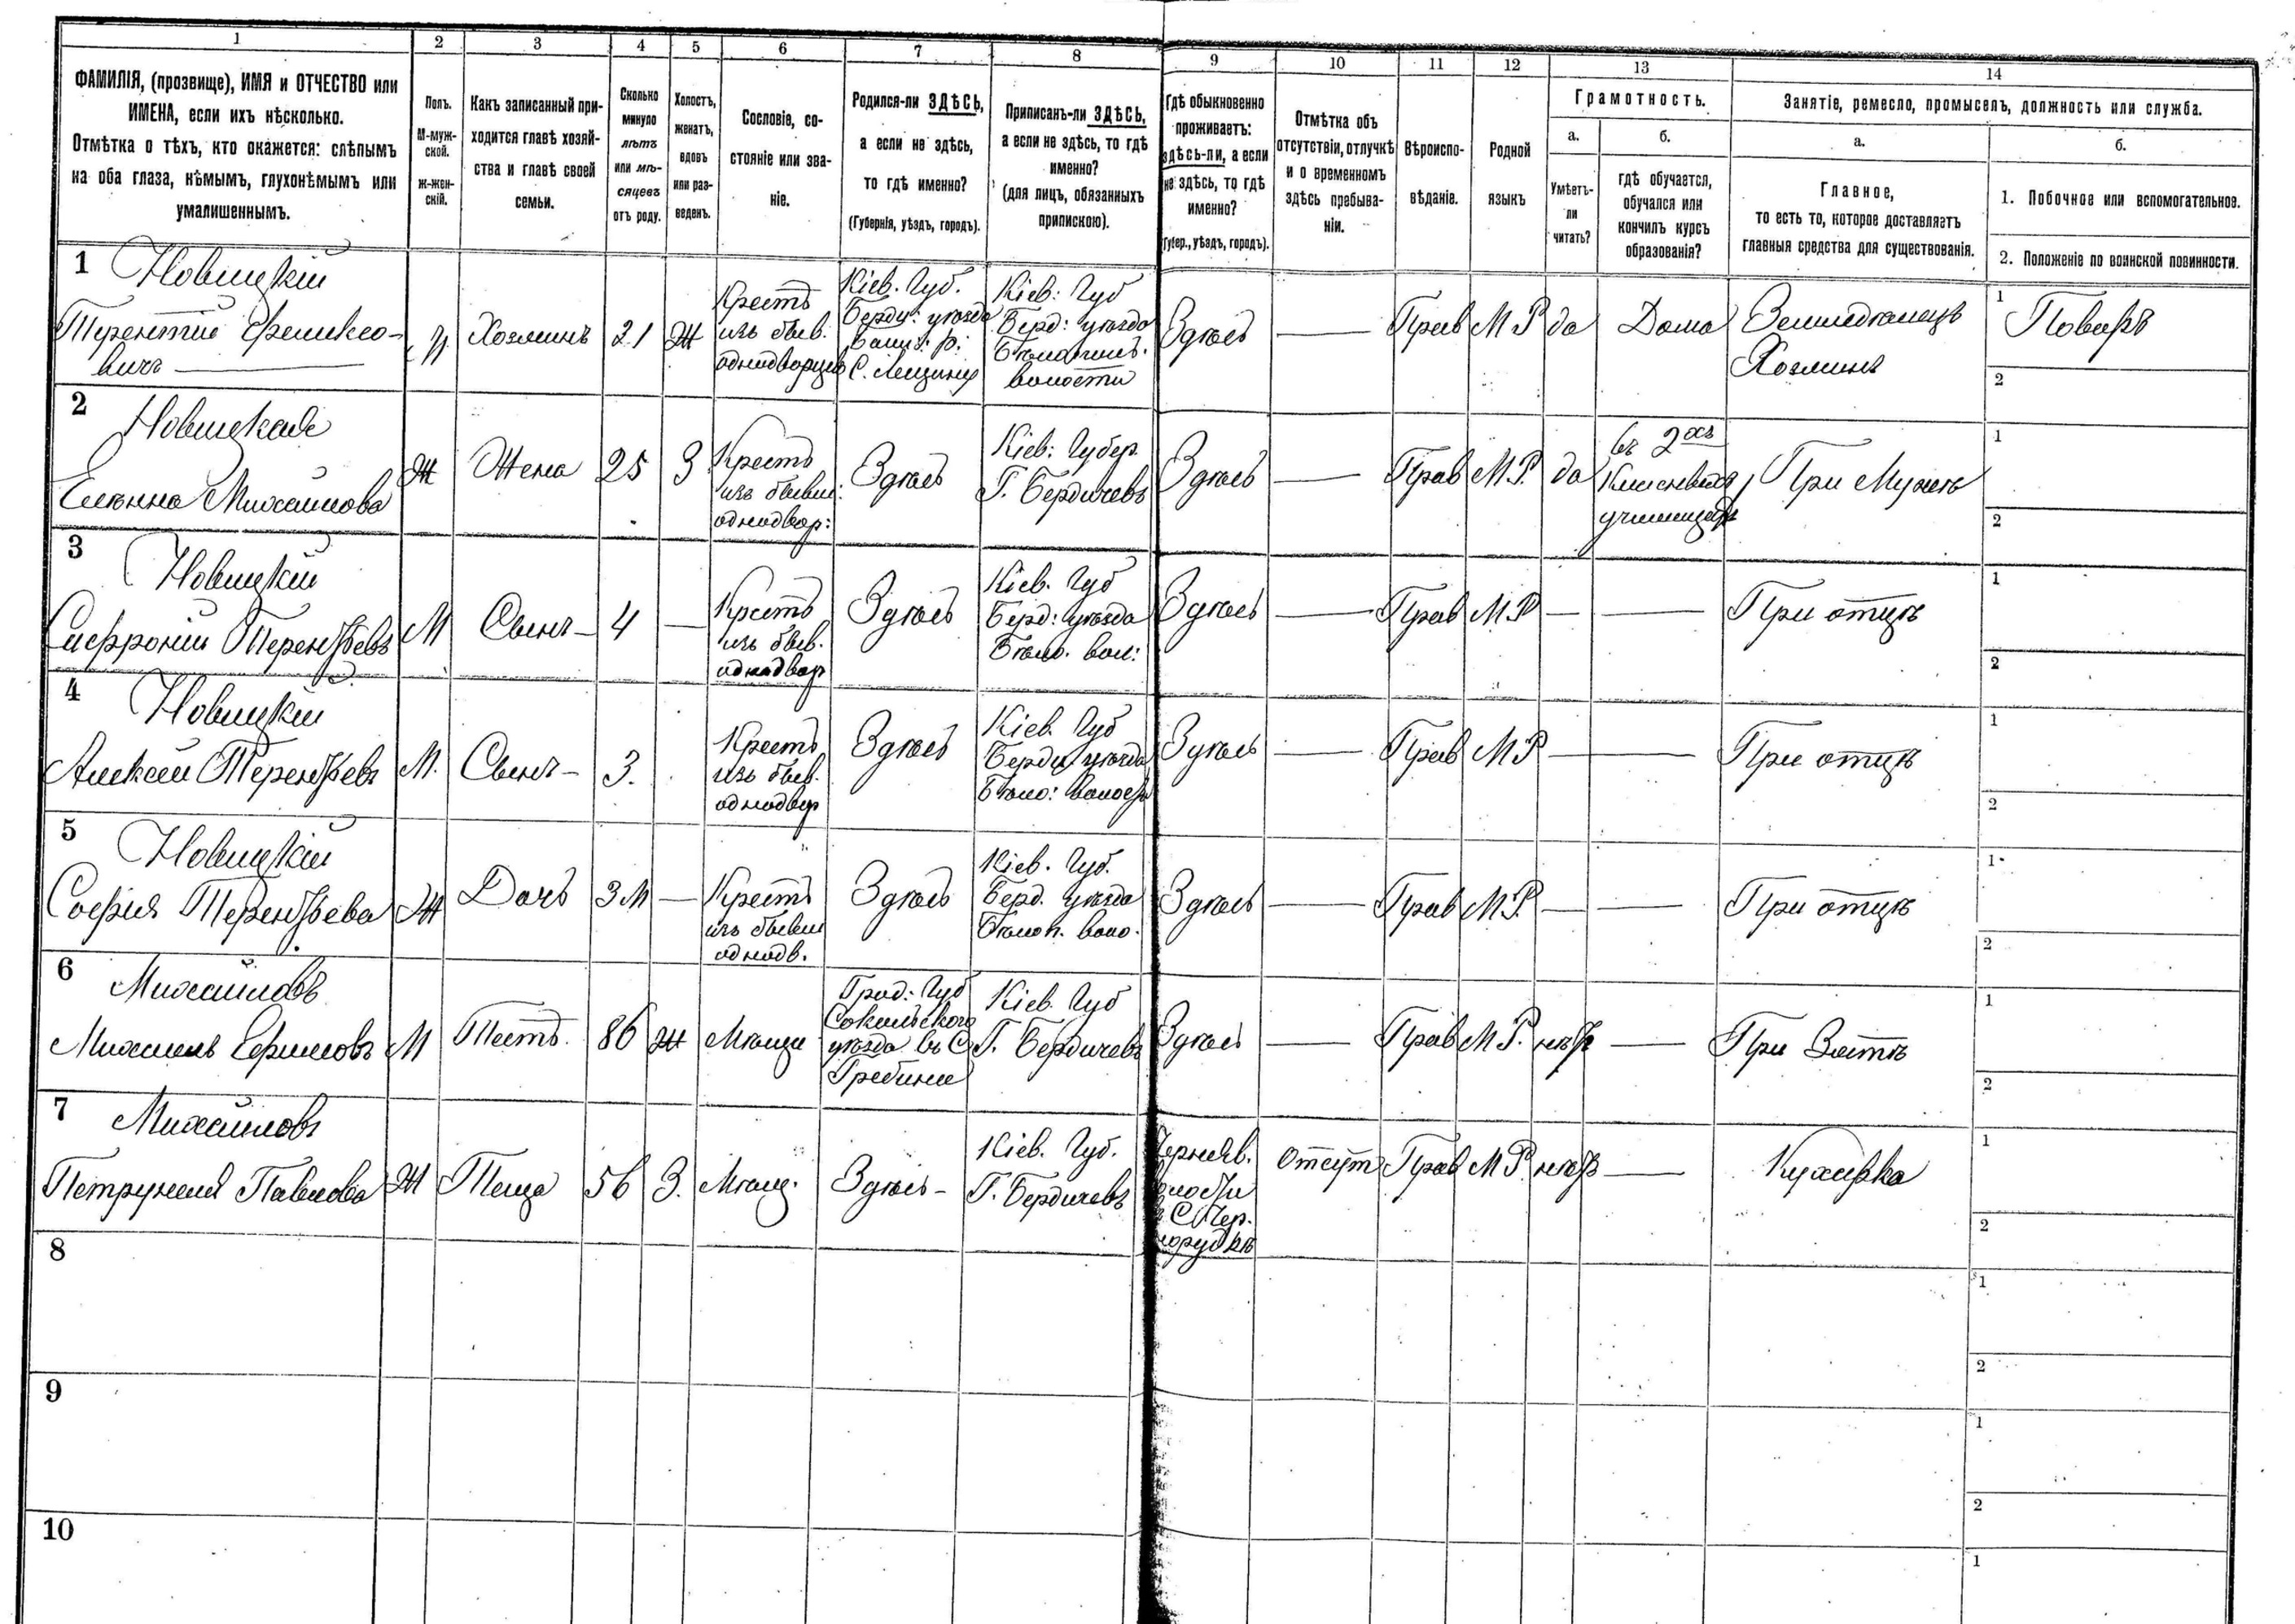 1 2 3 4 5 6 7 8 9 10 11 12 13 14
ФАМИЛІЯ, (прозвище), ИМЯ и ОТЧЕСТВО или
ИМЕНА, если ихъ нѣсколько.
Отмѣтка о тѣхъ, кто окажется: слѣпымъ
на оба глаза, нѣмымъ, глухонѣмымъ или
умалишеннымъ.
Полъ.
М-муж-
ской.
ж-жен-
скій.
Какъ записанный при-
ходится главѣ хозяй-
ства и главѣ своей
семьи.
Сколько
минуло
лѣтъ
или мѣ-
сяцевъ
отъ роду.
Холостъ,
женатъ,
вдовъ
или раз-
веденъ.
Сословіе, со-
стояніе или зва-
ніе.
Родился-ли ЗДѢСЬ,
а если не здѣсь,
то гдѣ именно?
(Губернія, уѣздъ, городъ).
Приписанъ-ли ЗДѢСЬ,
а если не здѣсь, то гдѣ
именно?
(для лицъ, обязанныхъ
припискою).
Гдѣ обыкновенно
проживаетъ:
здѣсь-ли, а если
не здѣсь, то гдѣ
именно?
(Губер., уѣздъ, городъ).
Отмѣтка объ
отсутствіи, отлучкѣ
и о временномъ
здѣсь пребыва-
ніи.
Вѣроиспо-
вѣданіе.
Родной
языкъ
Грамотность.
а.
Умѣетъ-
ли
читать?
б.
гдѣ обучается,
обучался или
кончилъ курсъ
образованія?
Занятіе, ремесло, промыселъ, должность или служба.
а.
Главное,
то есть то, которое доставляетъ
главныя средства для существованія.
б.
1. Побочное или вспомогательное.
2. Положеніе по воинской повинности.
1 Новицкій
Терентій
вичъ
Хозяинъ
Ж
Крестъ
изъ бывш.
однодворцевъ
Кіев. Губ.
Берди: уѣзда
Кіев: Губ
Берд: уѣзда
волости
Здѣсь
Прав
М Р
да
Дома
Земледѣлецъ
Хозяинъ
1 Поваръ
2
2 Новицкая
Михайлова
Ж
Жена
25
З
Крестъ
изъ бывш:
однодвор:
Здѣсь
Кіев: Губер
Г. Бердичевъ
Здѣсь
Прав
М Р.
да
въ 2хъ
училищѣ
При Мужѣ
1
2
3 Новицкій
Терентьевъ
М
Сынъ
4
Крестъ
изъ бывш.
однодвор
Здѣсь
Кіев. Губ
Берд: уѣзда
Бѣло. вол:
Здѣсь
Прав
М Р
При отцѣ
1
2
4 Новицкій
Алексѣй Терентьевъ
М.
Сынъ
3.
Крестъ
изъ бывш.
однодвор
Здѣсь
Кіев. Губ
Берди уѣзда
Бѣло: волость
Здѣсь
Прав
М Р
При отцѣ
1
2
5 Новицкій
Софія Терентьева
Ж
Дочь
3 М
Крестъ
изъ бывш
однодв.
Здѣсь
Кіев. Губ.
Берд. уѣзда
Бѣлоп. воло.
Здѣсь
Прав
М Р.
При отцѣ
1
2
6 Михайловъ
Михаилъ Ефимовъ
М
Тесть
86
Ж
Мѣща
Сокальского
уѣзда въ С
Кіев. Губ
Г. Бердичевъ
Здѣсь
Прав
М Р.
нѣтъ
При Зятѣ
1
2
7 Михайловъ
Петрунеля Павлова
Ж
Теща
56
З.
Мѣщ.
Здѣсь
Кіев. Губ.
Г. Бердичевъ
Отсут
Прав
М Р.
нѣтъ
Кухарка
1
2
8
1
2
9
1
2
10
1